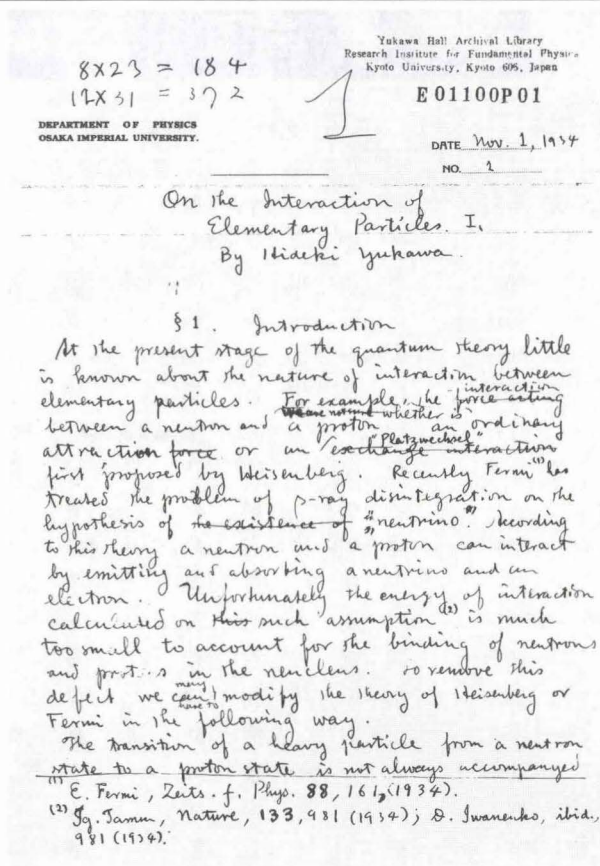 Yukawa Hall Archival Library
Research Institute for Fundamental Physics
Kyoto University, Kyoto 606, Japan
E01100P01
8×23 = 184
12×31 = 372
DEPARTMENT OF PHYSICS
OSAKA IMPERIAL UNIVERSITY.
DATE Nov. 1, 1934
NO. 1
On the Interaction of
Elementary Particles. I.
By Hideki Yukawa.
§ 1. Introduction
At the present stage of the quantum theory little
is known about the nature of interaction between
elementary particles. For example, the force acting
interaction
We are not sure whether is
between a neutron and a proton an ordinary
"Platzwechsel"
attraction force or an exchange interaction
first proposed by Heisenberg. Recently Fermi (1) has
treated the problem of β-ray disintegration on the
hypothesis of the existence of "neutrino". According
to this theory a neutron and a proton can interact
by emitting and absorbing a neutrino and an
electron. Unfortunately the energy of interaction
calculated on this such assumption (2) is much
too small to account for the binding of neutrons
and protons in the neucleus. To remove this
may
defect we can modify the theory of Heisenberg or
have to
Fermi in the following way.
The transition of a heavy particle from a neutron
state to a proton state is not always accompanyed
(1) E. Fermi, Zeits. f. Phys. 88, 161, (1934).
(2) Ig. Tamm, Nature, 133, 981 (1934); D. Iwanenko, ibid.,
981 (1934).